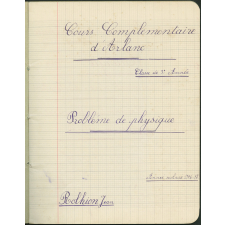 Cours Complémentaire
d'Arlanc
Classe de 1re Année
Problème de physique
Année scolaire
Pothion